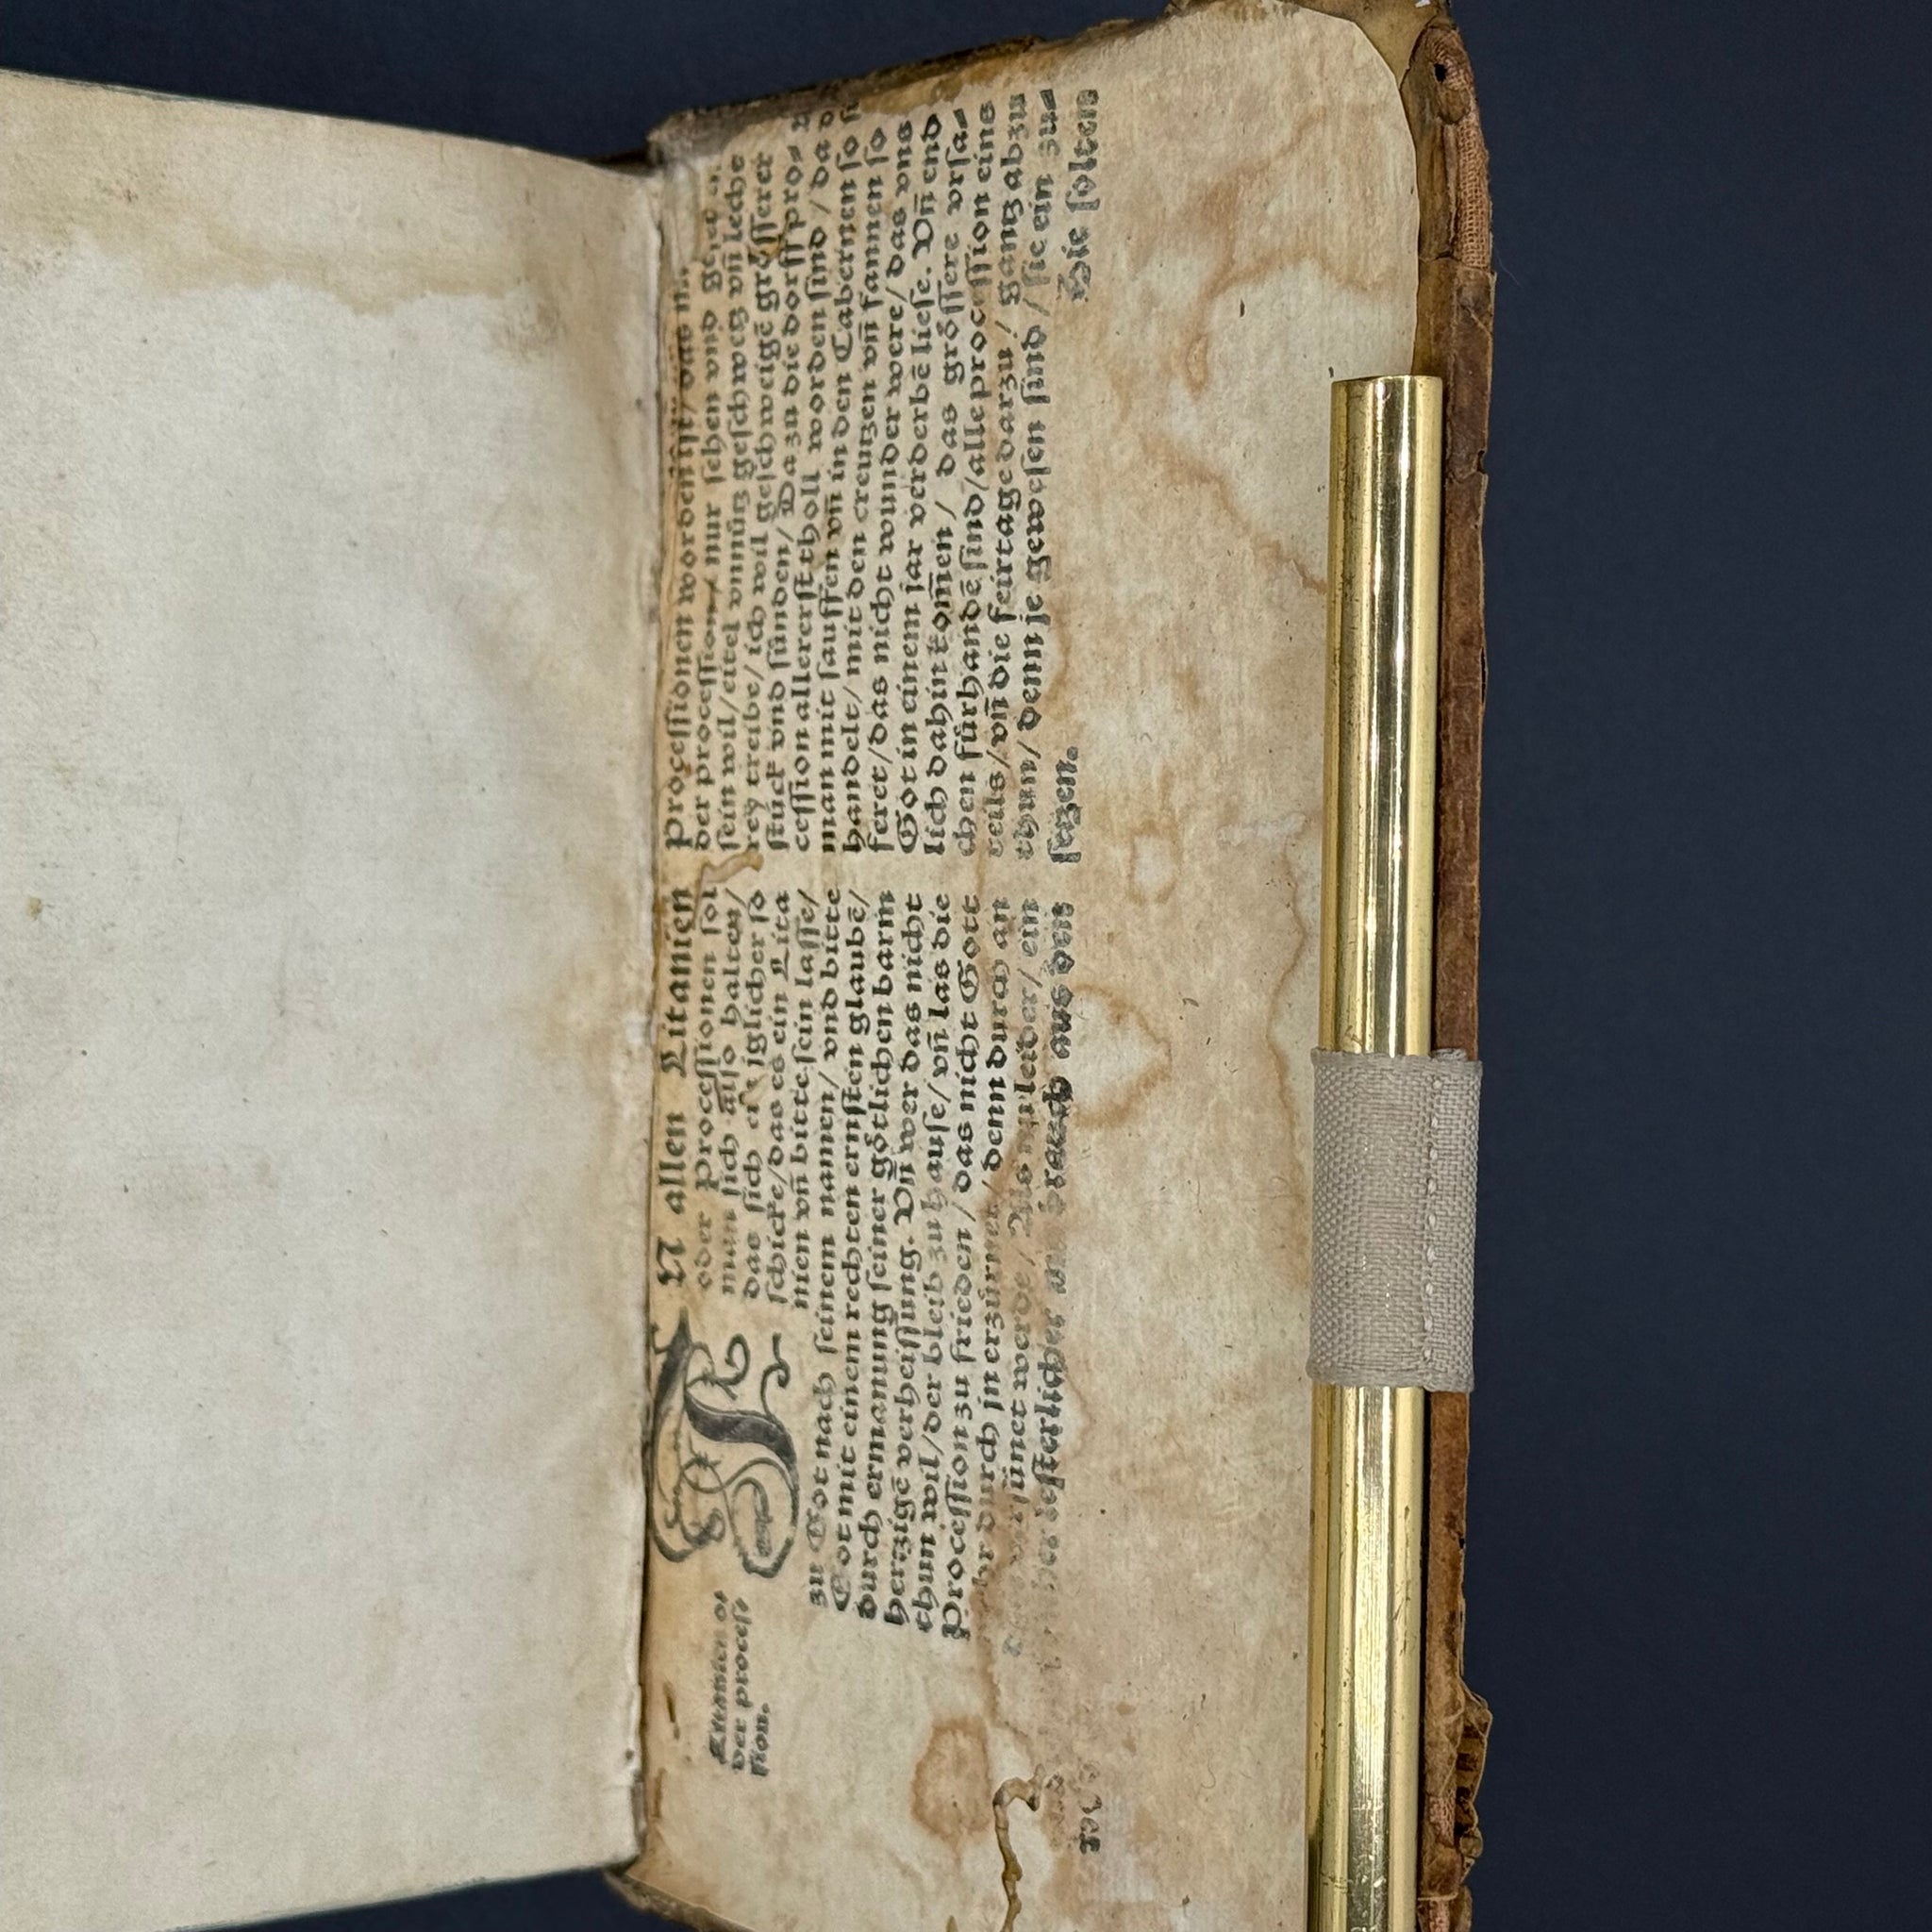 Litanien od
der process
sion.
JN allen Litanien
oder Processionen sol
man sich also halten/
das sich ein iglicher so
schicke/das es ein Lita
nien vñ bitte sein lasse/
zu Got nach seinem namen/ vnd bitte
Got mit einem rechten ernsten glaubē/
durch ermanung seiner götlichen barm
hertzigē verheissung. Vñ wer das nicht
thun wil/der bleib zuhause/vñ las die
Procession zu frieden/das nicht Gott
durch jn erzürnet/denn durch an
versünet werde/ Als leider/ ein
lesterlicher brauch aus den
Processionen worden ist/ das
der procession/ nur sehen vnd
sein wil/eitel vnnütz geschwetz vñ leche
rey treibe/ich wil geschweigē grösserer
stück vnd sünden/Da zu die dorff pro⸗
cession allererst tholl worden sind/da
man mit sauffen vñ in den Tabernen so
handelt/mit den creutzen vñ fannen so
feret/das nicht wunder were/das vns
Got in einem jar verderbē liese. Vñ end
lich dahin komen/ das grössere vrsa⸗
chen fürhandē sind/alle procession eins
teils/vñ die feirtage darzu/gantz abzu
thun/denn je gewesen sind/sie ein zu⸗
setzen. Hie solten